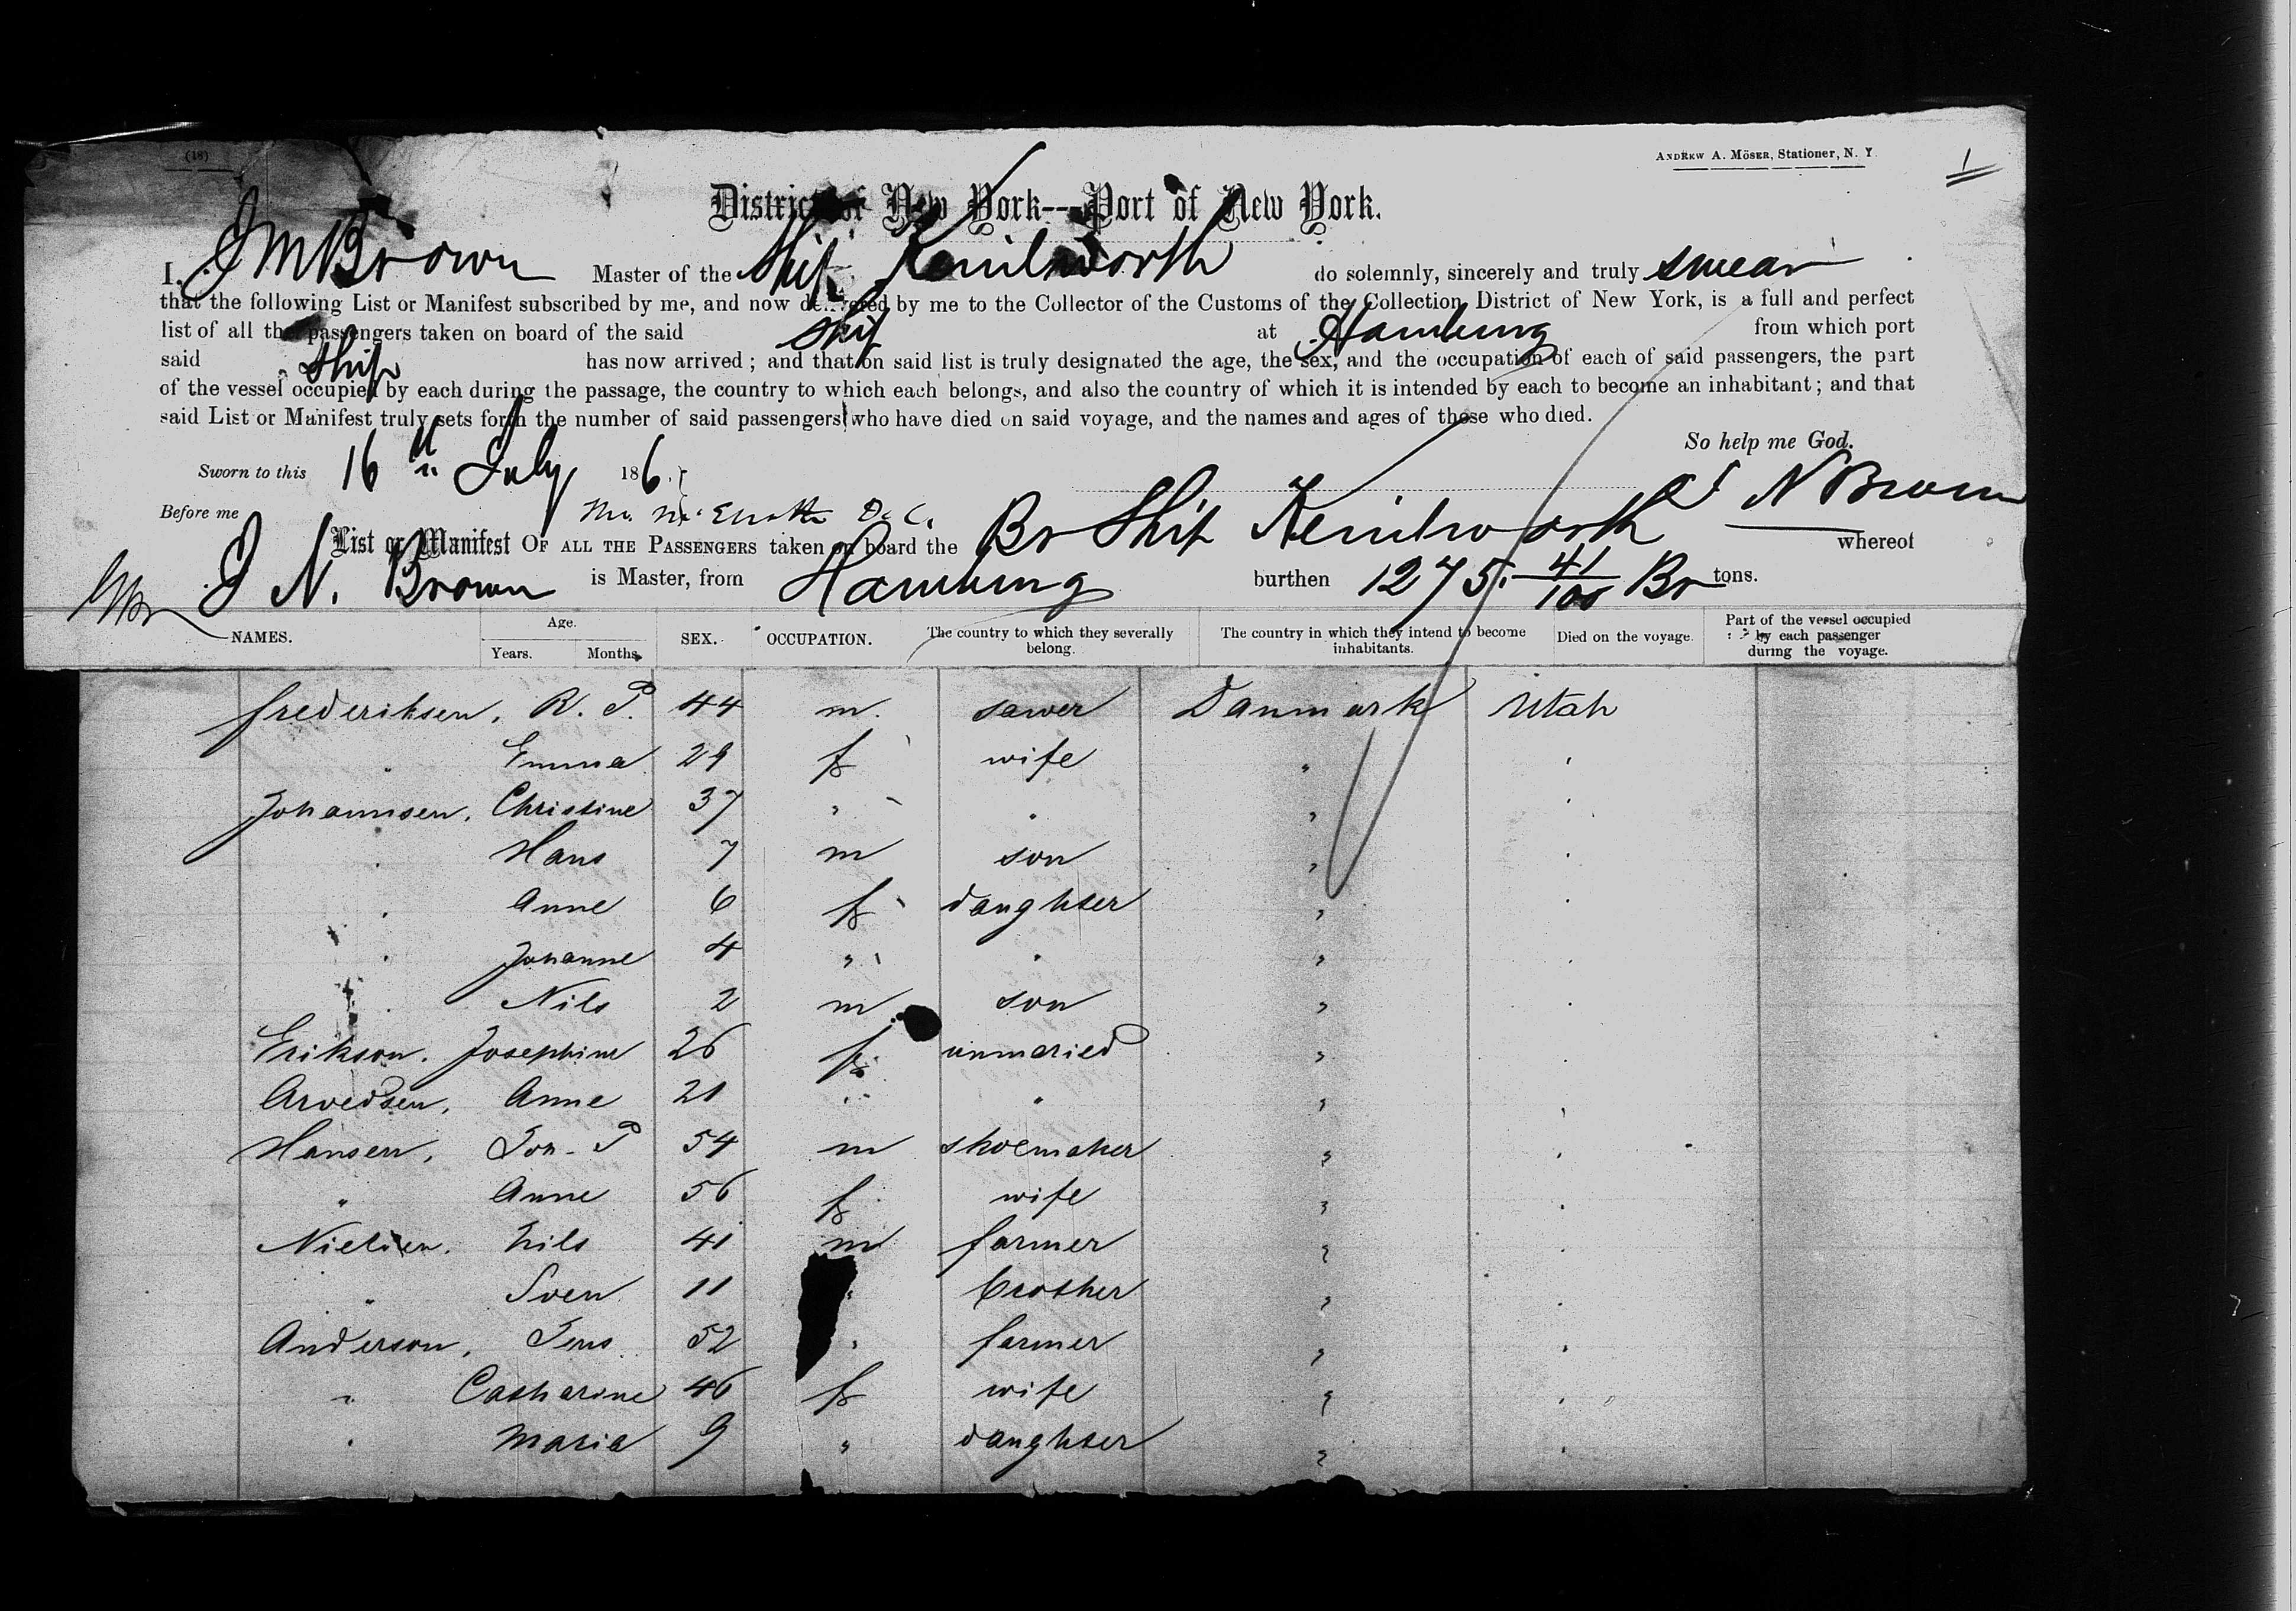 (18)
ANDREW A. MÖSER, Stationer, N. Y.
1
District of New York--Port of New York.
I, J M Brown Master of the Ship Kenilworth do solemnly, sincerely and truly swear
that the following List or Manifest subscribed by me, and now delivered by me to the Collector of the Customs of the Collection District of New York, is a full and perfect
list of all the passengers taken on board of the said Ship at Hamburg from which port
said Ship has now arrived; and that on said list is truly designated the age, the sex, and the occupation of each of said passengers, the part
of the vessel occupied by each during the passage, the country to which each belongs, and also the country of which it is intended by each to become an inhabitant; and that
said List or Manifest truly sets forth the number of said passengers who have died on said voyage, and the names and ages of those who died.
So help me God.
Sworn to this 16th July 186.
J N Brown
Before me
List or Manifest OF ALL THE PASSENGERS taken on board the Br Ship Kenilworth whereof
J N. Brown is Master, from Hamburg burthen 1275. 41/100 Br tons.
NAMES. Age. Years. Months. SEX. OCCUPATION. The country to which they severally belong. The country in which they intend to become inhabitants. Died on the voyage. Part of the vessel occupied by each passenger during the voyage.
frederiksen, R. P. 44 m. sawer Danmark Utah
" Emma 29 f wife " "
Johannsen, Christine 37 " " " "
" Hans 7 m son " "
" Anne 6 f daughter " "
" Johanne 4 " " " "
" Nils 2 m son " "
Erikson. Josephine 26 f unmaried " "
Arvedsen, Anne 21 " " " "
Hansen, Jon. P 54 m shoemaker " "
" Anne 56 f wife " "
Nielsen. Nils 41 m farmer " "
" Sven 11 " brother " "
Anderson, Jens 52 " farmer " "
" Catharine 46 f wife " "
" Maria 9 " daughter " "